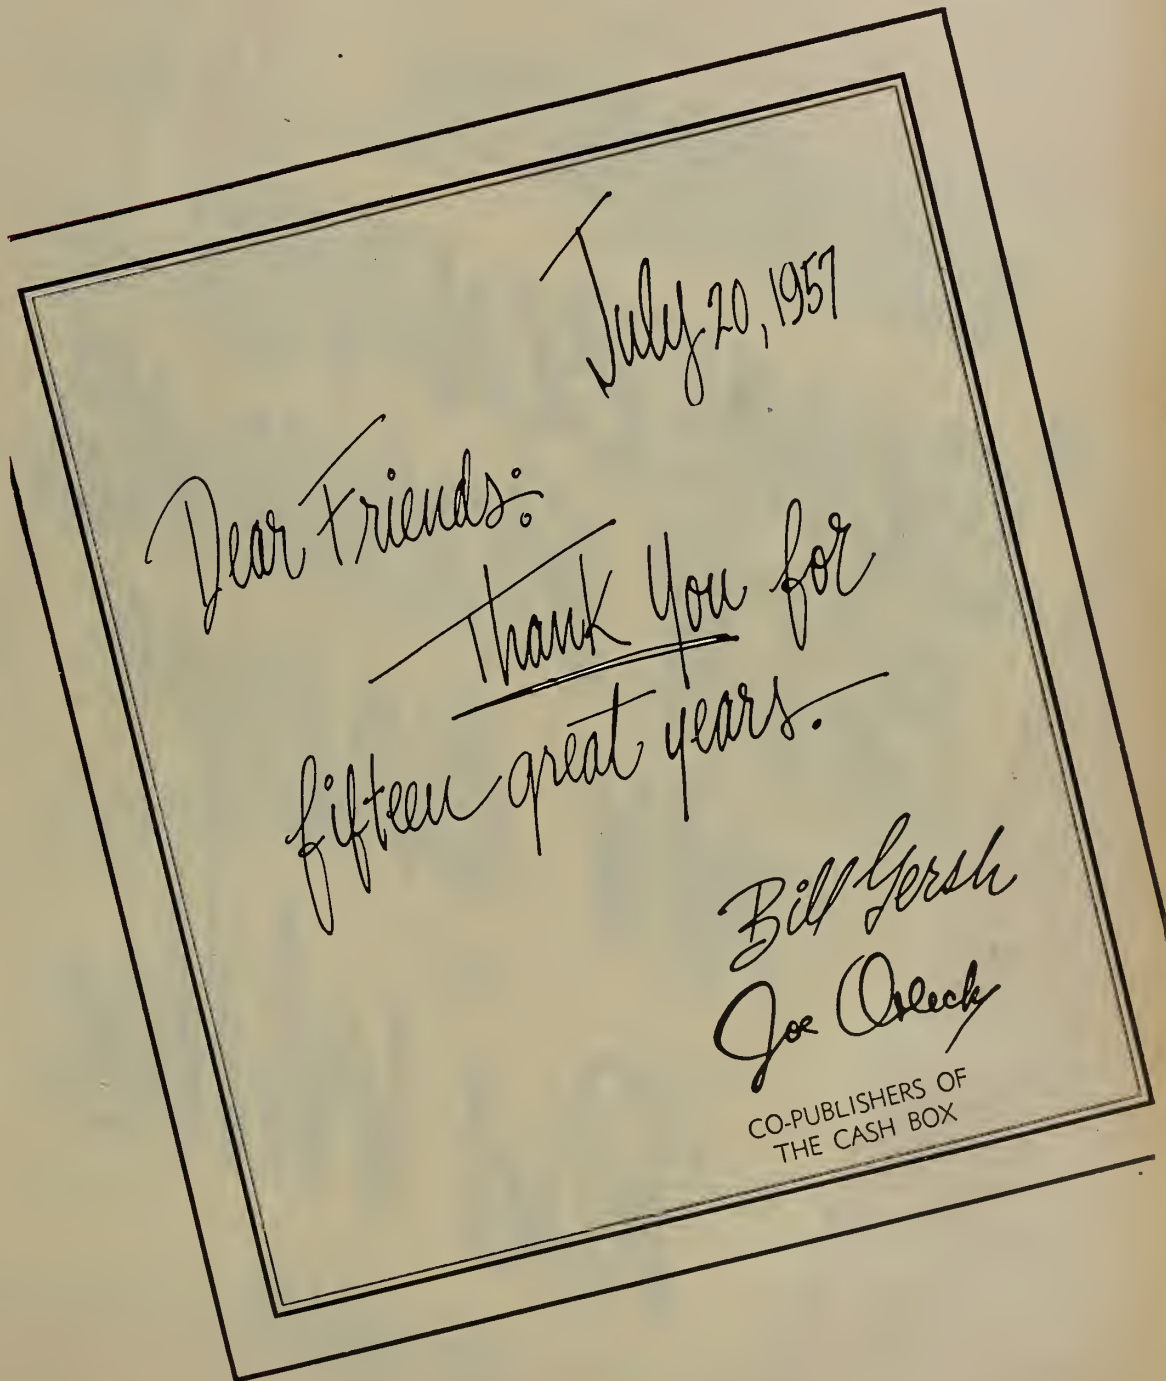 July 20, 1957
Dear Friends:
Thank You for
fifteen great years.
Bill Gersh
Joe Orleck
CO-PUBLISHERS OF
THE CASH BOX